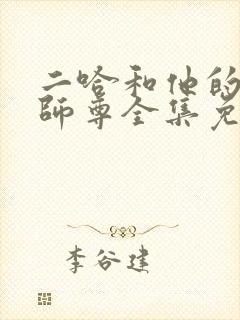 二哈和他的
師尊全集免
李谷建